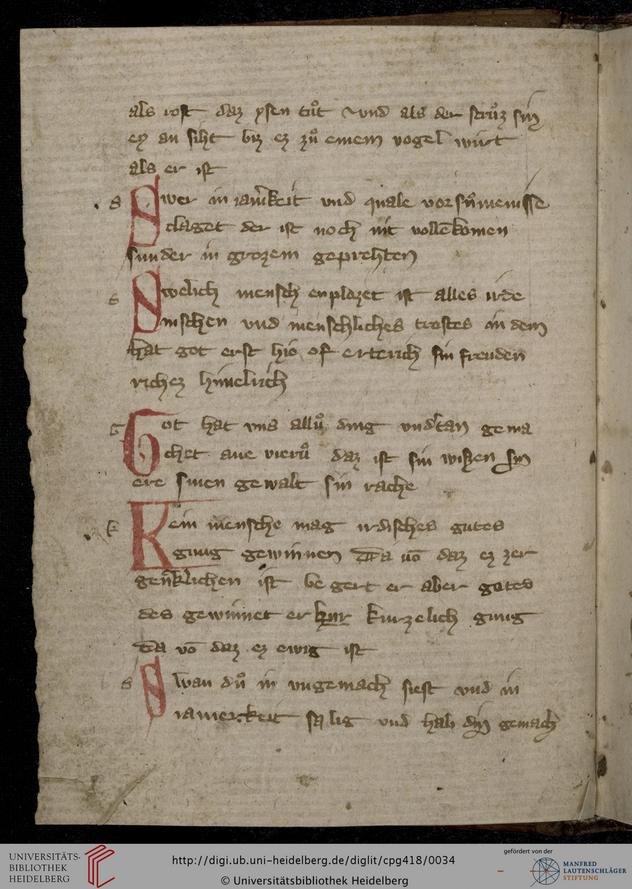 als rost daz ysen tůt vnd als der struz sin
ey an siht biz ez zů einem vogel wirt
als er ist
s Swer in iam̄keit vnd quale vor
claget der ist noch nit vollēkomen
sunder in grozem geprehten
s Swelich mensch enplozet ist alles irde
nischen vnd menschliches trostes in dem
hat got erst hie of erterich sin freuden
richez himelrich
g Got hat vns allů ding vndertan gema
chet ane vierů daz ist sin wissen sin
ere sinen gewalt sin rache
k Kein mensche mag irdisches gutes
gnug gewinnen Da vō daz ez zer
genklichen ist begert er aber gotes
des gewinnet er kurzelich gnug
Da vō daz ez ewig ist
s Swan dů in vngemach siest vnd in
iamerkeit so lig vnd hab din gemach
UNIVERSITÄTS-
BIBLIOTHEK
HEIDELBERG
http://digi.ub.uni-heidelberg.de/diglit/cpg418/0034
© Universitätsbibliothek Heidelberg
gefördert von der
MANFRED
LAUTENSCHLÄGER
STIFTUNG